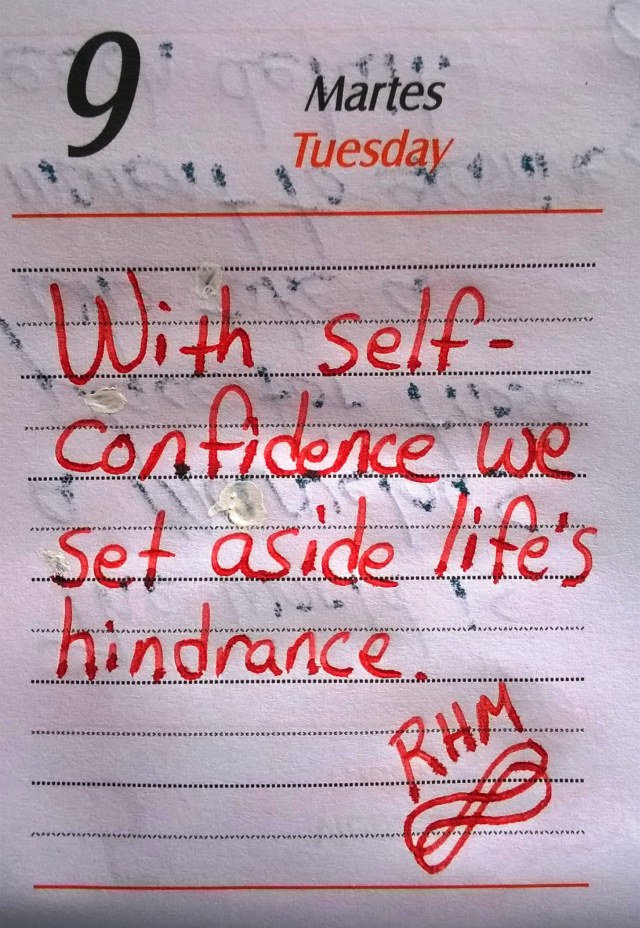 9
Martes
Tuesday
With self-
confidence we
set aside life's
hindrance.
RHM